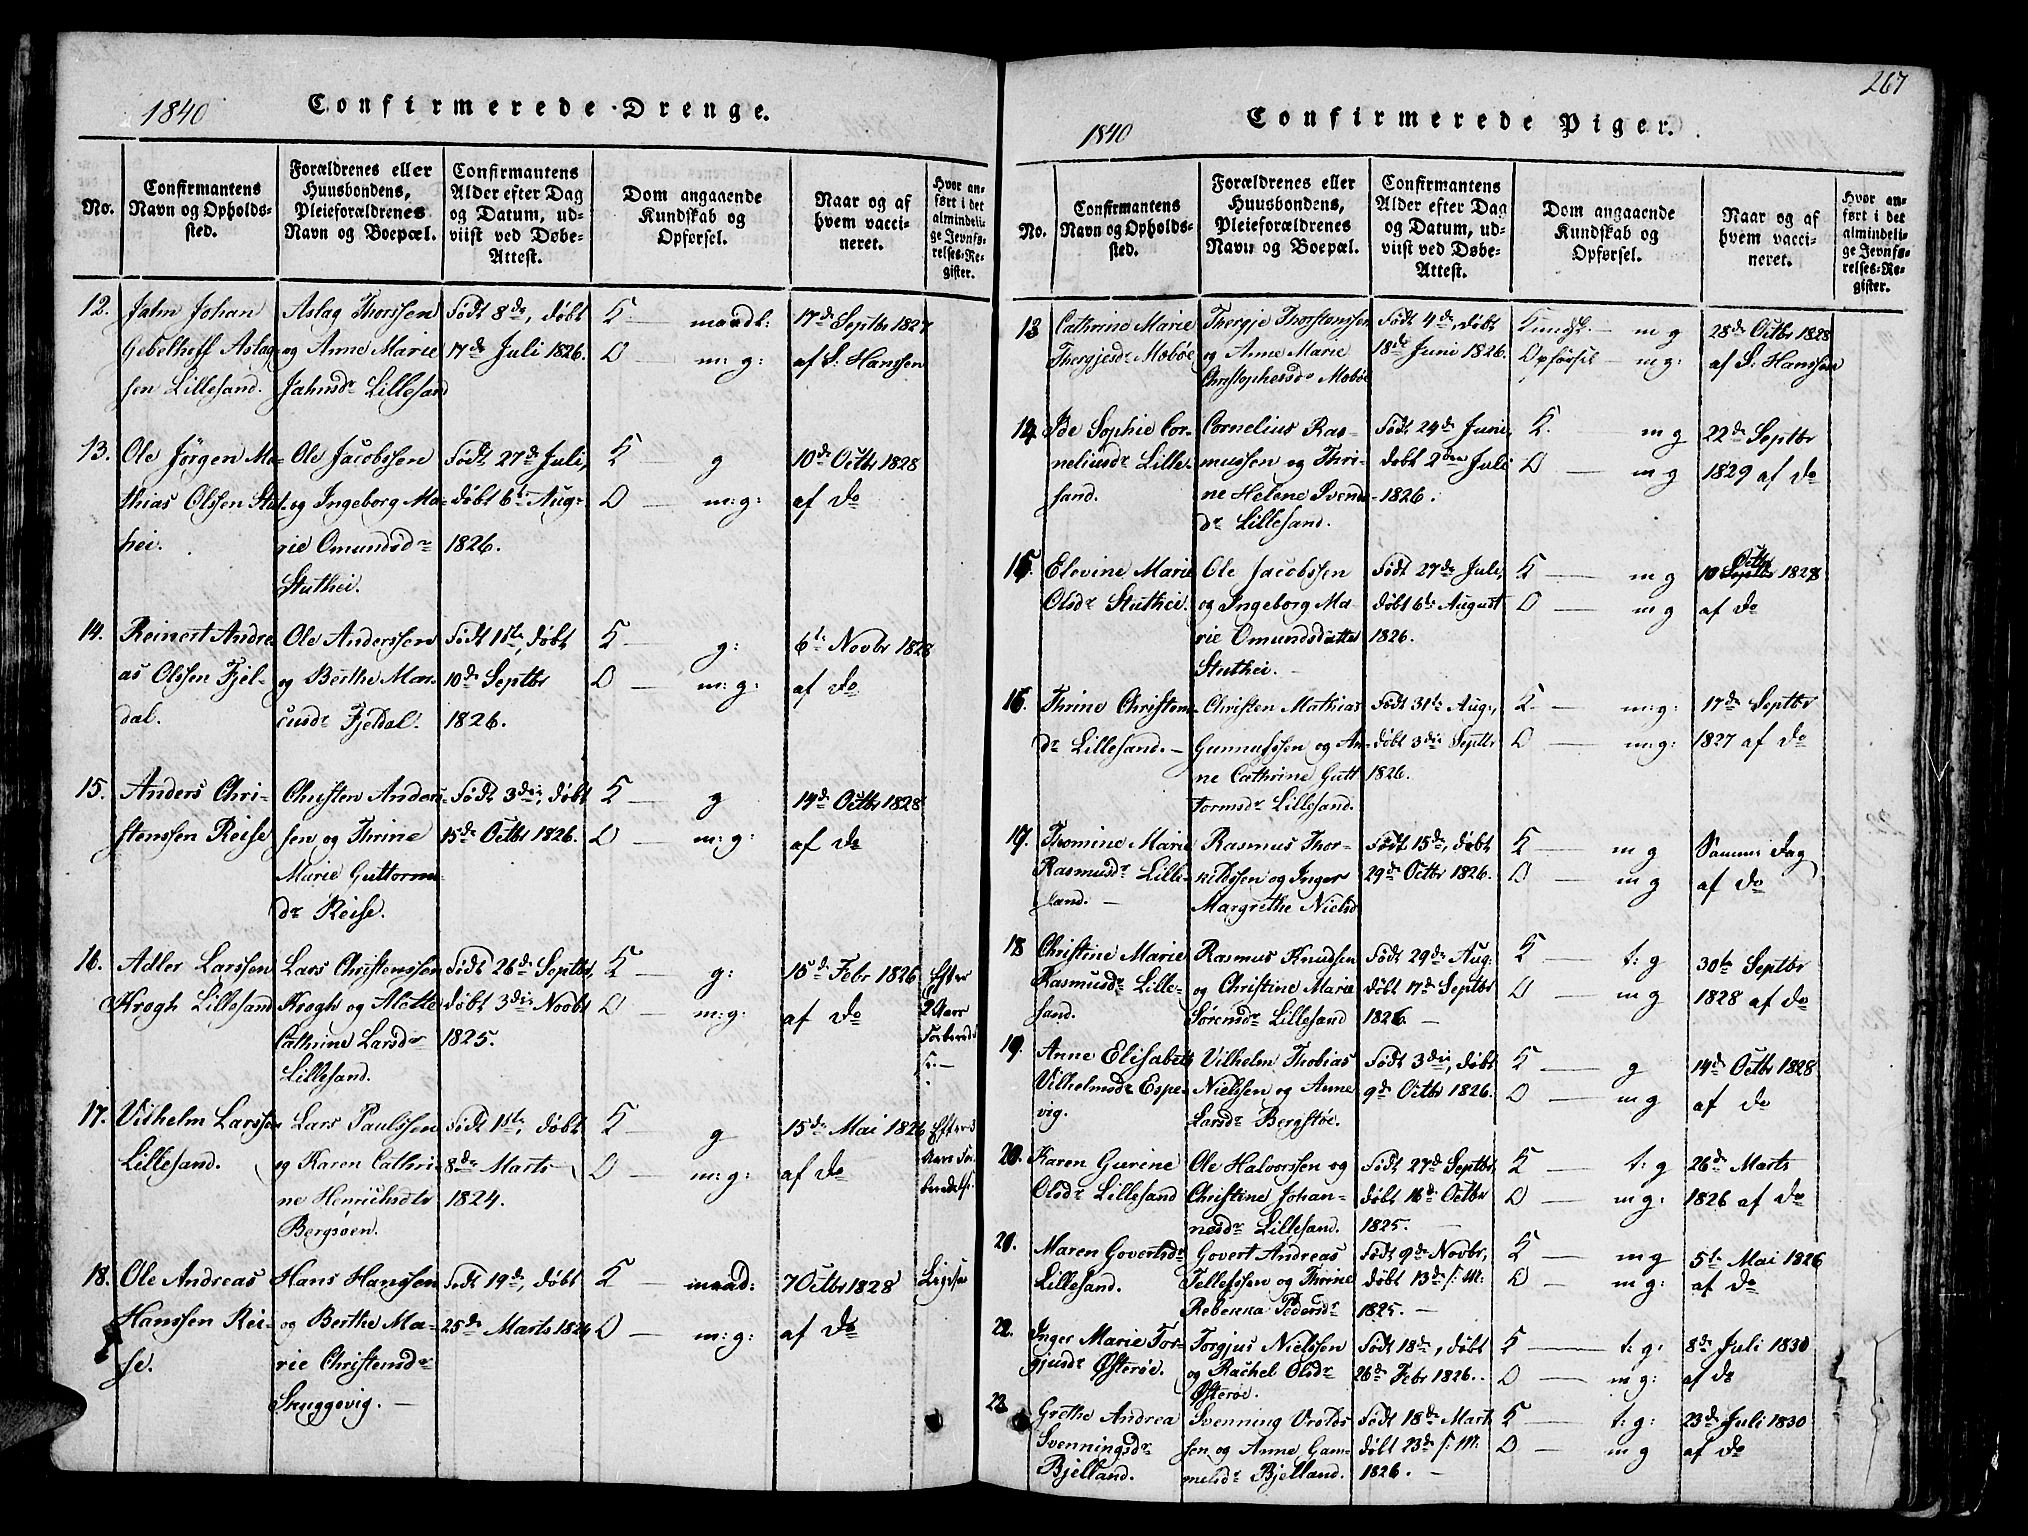 1840
Confirmerede Drenge.
No.
Confirmantens
Navn og Opholds-
sted.
Forældrenes eller
Huusbondens,
Pleieforældrenes
Navn og Boepæl.
Confirmantens
Alder efter Dag
og Datum, ud-
viist ved Døbe-
Attest.
Dom angaaende
Kundskab og
Opførsel.
Naar og af
hvem vacci-
neret.
Hvor an-
ført i det
almindeli-
ge Jevnfø-
relses-Re-
gister.
12.
Jahn Johan
Gebelhoff Aslag-
sen Lillesand.
Aslag Thorssen
og Anne Marie
Jahnsdr Lillesand
Født 8de, døbt
17de Juli 1826.
K — maadl:
O — m:g:
17de Septbr 1827
af S. Hanssen
13.
Ole Jørgen Ma-
thias Olssen Stut-
hei.
Ole Jacobssen
og Ingeborg Ma-
rie Omundsdr
Stuthei.
Født 27de Juli,
døbt 6te Aug:
1826.
K — g
O — m:g:
10de Octbr 1828
af do
14.
Reinert Andre
as Olssen Fjel-
dal.
Ole Anderssen
og Berthe Mar-
cusdr Fjeldal.
Født 1ste, døbt
10de Septbr
1826.
K — g:
O — m:g:
6te Novbr 1828
af do
15.
Anders Chri-
stenssen Reise
Christen Anders-
sen og Thrine
Marie Guttorms-
dr Reise.
Født 3die, døbt
15de Octbr 1826.
K — g
O — m:g:
14de Octbr 1828
af do
16.
Adler Larssen
Krogh Lillesand
Lars Christenssen
Krogh og Alette
Cathrine Larsdr
Lillesand.
Født 26de Septbr,
døbt 3die Novbr
1825.
K — g:
O — m:g:
15de Febr 1826
af do
Efter
2 Aars
Forbered
17.
Vilhelm Larssen
Lillesand.
Lars Paulssen
og Karen Cathri
ne Henrichsdtr
Bergsøen.
Født 1ste, døbt
8de Marts
1824.
K — g
O — m:g:
15de Mai 1826
af do
Efter 3
Aars For
beredelse
18.
Ole Andreas
Hanssen Rei-
se.
Hans Hanssen
og Berthe Ma-
rie Christensdr
Skuggevig. —
Født 19de, døbt
25de Marts 1824
K — maad:
O — m:g:
7 Octbr 1828
af do
267
1840
Confirmerede Piger.
No.
Confirmantens
Navn og Opholds-
sted.
Forældrenes eller
Huusbondens,
Pleieforældrenes
Navn og Boepæl.
Confirmantens
Alder efter Dag
og Datum, ud-
viist ved Døbe-
Attest.
Dom angaaende
Kundskab og
Opførsel.
Naar og af
hvem vacci-
neret.
Hvor an-
ført i det
almindeli-
ge Jevnfø-
relses-Re-
gister.
13
Cathrine Marie
Thergjesdr Mobøe
Thergje Thorstenssen
og Anne Marie
Christophersdr Mobøe
Født 4de, døbt
18de Juni 1826.
Kundsk. — m g
Opførsel — m g:
28de Octbr 1828
af S. Hanssen
14
Ide Sophie Cor-
neliusdr Lille-
sand.
Cornelius Ras-
mussen og Thri-
ne Helene Svends
dr Lillesand.
Født 24de Juni,
døbt 2den Juli
1826.
K. m g
O — m g
22de Septbr
1829 af do
15.
Elevine Marie
Olsdr Stuthei.
Ole Jacobssen
og Ingeborg Ma-
rie Omundsdatter
Stuthei. —
Født 27de Juli,
døbt 6te August
1826.
K — m g
O — m g
Octbr
10 Septbr 1828
af do
16.
Thrine Christens-
dr Lillesand. —
Christen Mathias
Gunnufssen og An-
ne Cathrine Gutt
tormsdr Lillesand.
Født 31te Aug:,
døbt 3die Septbr
1826.
K — m:g:
O — m:g:
17de Septbr
1827 af do
17.
Thomine Marie
Rasmusdr Lille-
sand. —
Rasmus Thor-
kildssen og Inger
Margrethe Nielsd
Født 15de, døbt
29de Octbr 1826.
K — m g
O — m g
Samme Dag
af do
18
Christine Marie
Rasmusdr Lille-
sand.
Rasmus Knudsen
og Christine Marie
Sørensdr Lillesand
Født 29de Aug:
døbt 17de Septbr
1826. —
K — t:g
O — m g
30te Septbr
1828 af do
19.
Anne Elisabeth
Vilhelmsdr Espe-
vig.
Vilhelm Thobias
Nielssen og Anne
Larsdr Bergstøe.
Født 3die, døbt
9de Octbr 1826.
K — g
O — m g
14de Octbr 1828
af do
20.
Karen Gurine
Olsdr Lillesand
Ole Halvorssen og
Christine Johan-
nesdr Lillesand.
Født 27de Septbr,
døbt 16de Octbr
1825. —
K — t:g
O — m g:
26de Marts
1826 af do
21.
Maren Govertsdr
Lillesand.
Govert Andreas
Tellefssen og Thrine
Rebekka Pedersdr
Født 9de Novbr,
døbt 13de s: M:
1825. —
K — m g
O — m g:
5te Mai 1826
af do
22.
Inger Marie Tor-
gjusdr Østerøe.
Torgjus Nielssen
og Rachel Olsdr
Østerøe.
Født 18de, døbt
26de Febr 1826.
K — t:g:
O — m g:
8de Juli 1830
af do
23
Grethe Andrea
Svenningsdr
Bjelland.
Svenning Uvolds
sen og Anne Gam-
melsdr Bjelland.
Født 18de Mart
døbt 23de s: M:
1826. —
K — t:g:
O — m g
23de Juli 1830
af do